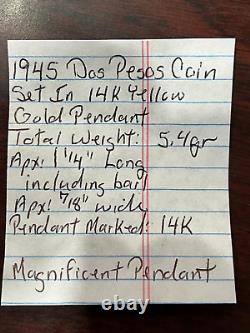 1945 Dos Pesos Coin
Set In 14K Yellow
Gold Pendant
Total Weight: 5.4gr
Apx! 1 1/4" Long
including bail
Apx! 7/8" wide
Pendant Marked: 14K
Magnificent Pendant